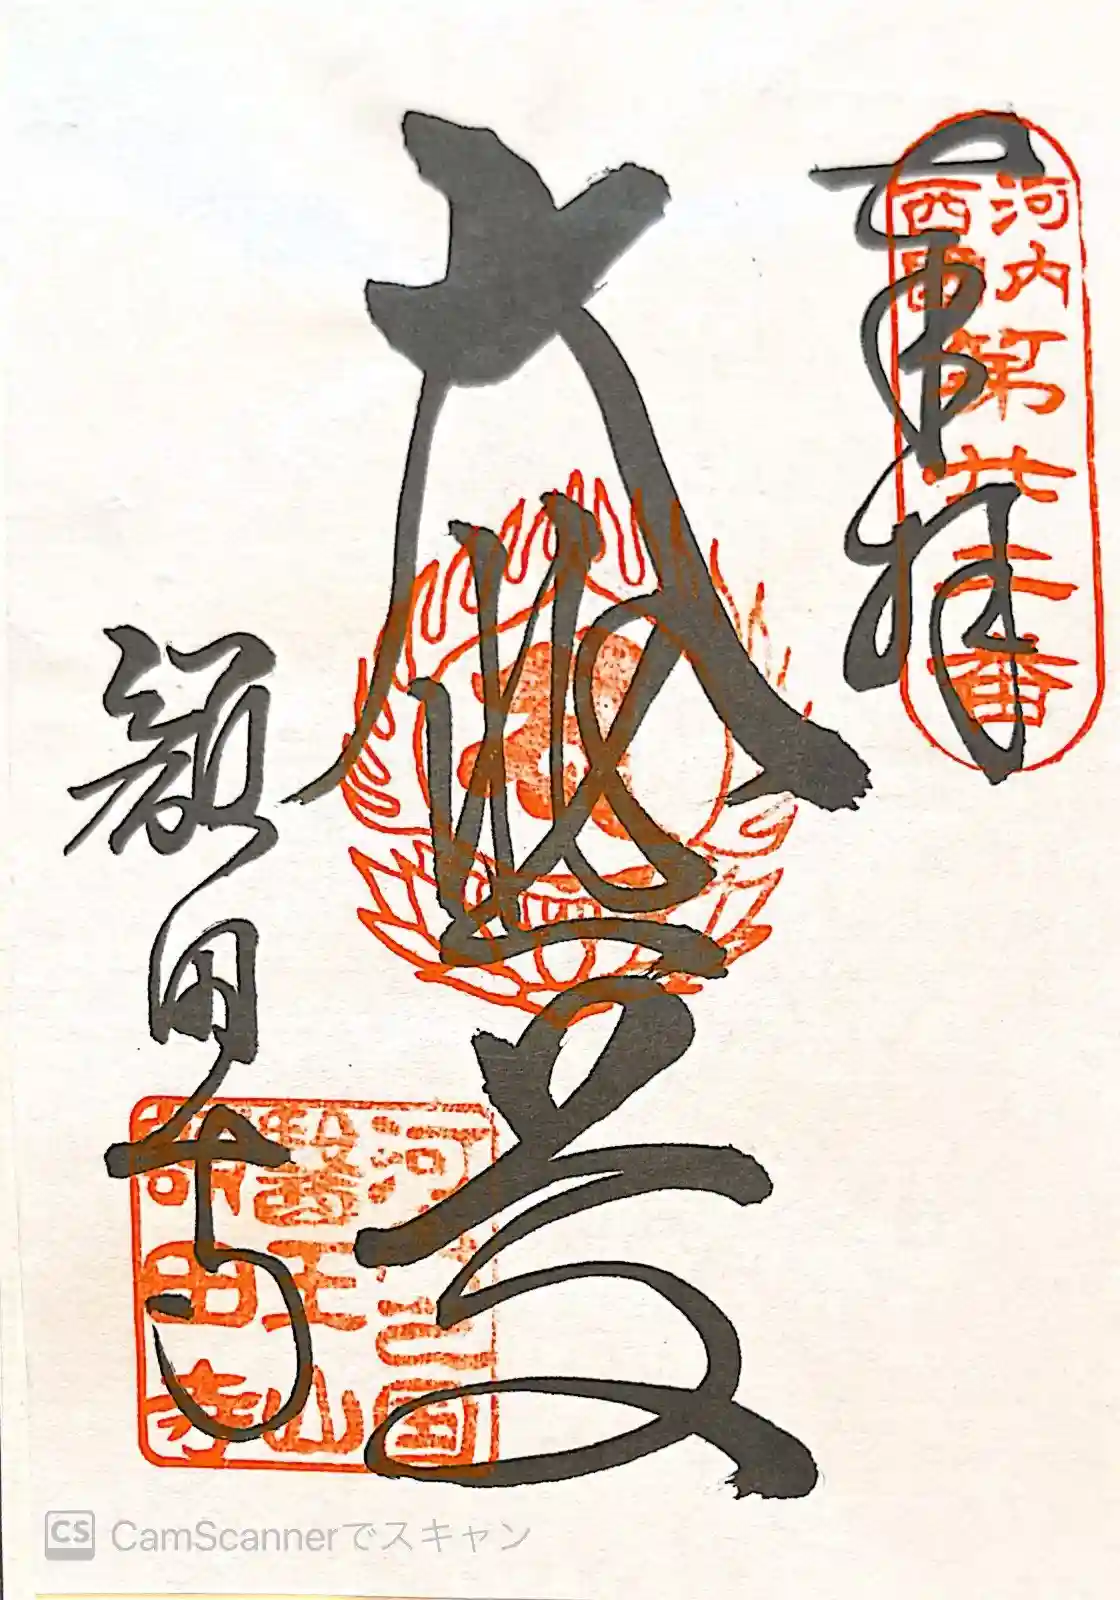 奉拝
河内
西国
第廿二番
大悲
額田寺
河内国
醫王山
額田寺
CS CamScannerでスキャン